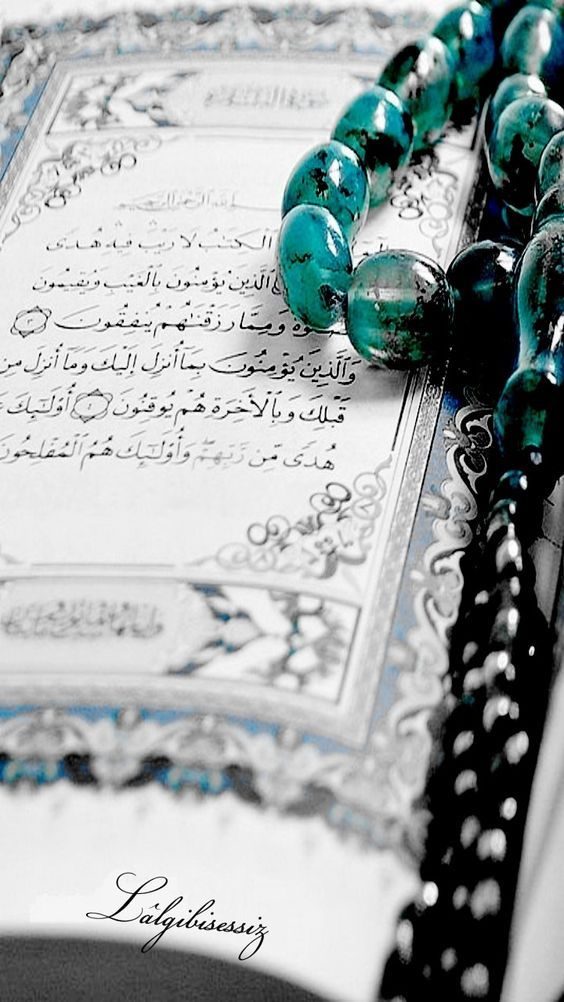 سُورَةُ الْبَقَرَةِ
بِسْمِ اللَّهِ الرَّحْمَٰنِ الرَّحِيمِ
الْكِتَٰبُ لَا رَيْبَ فِيهِ هُدًى
الَّذِينَ يُؤْمِنُونَ بِالْغَيْبِ وَيُقِيمُونَ
وَمِمَّا رَزَقْنَٰهُمْ يُنفِقُونَ
وَالَّذِينَ يُؤْمِنُونَ بِمَا أُنزِلَ إِلَيْكَ وَمَا أُنزِلَ مِن
قَبْلِكَ وَبِالْأَخِرَةِ هُمْ يُوقِنُونَ أُوْلَٰئِكَ
هُدًى مِّن رَّبِّهِمْ وَأُوْلَٰئِكَ هُمُ الْمُفْلِحُونَ
Lâlgibisessiz